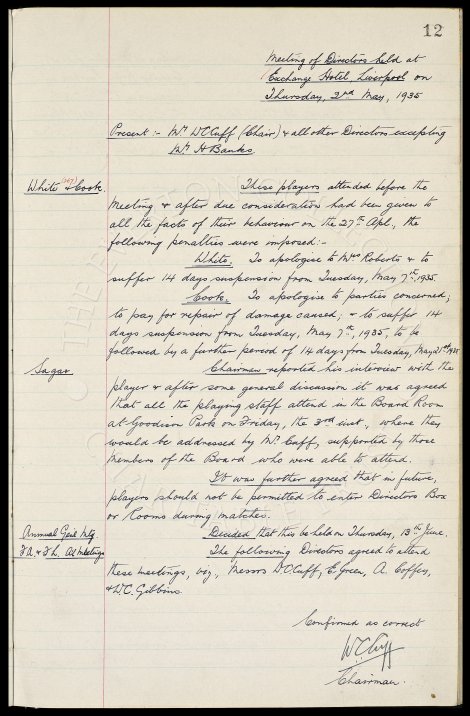 12
Meeting of Directors held at
Exchange Hotel, Liverpool on
Thursday, 2nd May, 1935
Present :- Mr WCCuff (Chair) & all other Directors excepting
Mr H Banks
White & Cook. These players attended before the
Meeting & after due consideration had been given to
all the facts of their behaviour on the 27th Apl., the
following penalties were imposed:-
White. To apologise to Mrs Roberts & to
suffer 14 days suspension from Tuesday, May 7th, 1935.
Cook. To apologise to parties concerned;
to pay for repair of damage caused; & to suffer 14
days suspension from Tuesday, May 7th, 1935, to be
followed by a further period of 14 days from Tuesday, May 21st 1935
Sagar Chairman reported his interview with the
player & after some general discussion it was agreed
that all the playing staff attend in the Board Room
at Goodison Park on Friday, the 3rd inst., where they
would be addressed by Mr. Cuff, supported by those
members of the Board who were able to attend.
It was further agreed that in future,
players should not be permitted to enter Directors Box
or Rooms during matches.
Annual Genl Mtg. Decided that this be held on Thursday, 13th June.
F.A. & F.L. Al Meetings The following Directors agreed to attend
these meetings, viz, Messrs W.C.Cuff, E.Green, A. Coffey,
& W.C. Gibbins.
Confirmed as correct
W.C.Cuff
Chairman.